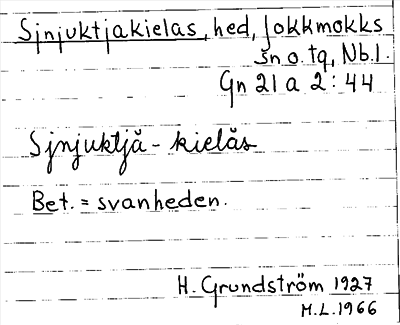 Sjnjuktjakielas, hed, Jokkmokks
sn o. tg, Nb.l.
Gn 21 a 2:44
Sjnjuktjă - kielăs
Bet. = svanheden.
H. Grundström 1927
M.L. 1966